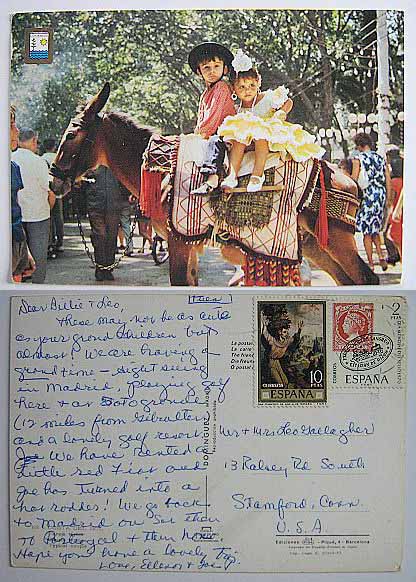 Dear Billie & Leo,
These may not be as cute
as your grand children but
almost! We are having a
grand time - sight seeing
in Madrid, playing golf
here & as Sotogrande
(12 miles from Gibraltar)
and a lovely golf resort.
We have rented a
little red Fiat and
Joe has turned into a
hot rodder! We go back
to Madrid on Sat then
to Portugal & then home.
Hope you have a lovely
Love, Ellenor & Joe
DOMINGUEZ
10
CORREOS
ESPAÑA
2
CORREOS
ESPAÑA
Mr & Mrs Leo Gallagher
13 Ralsey Rd South
Stamford, Conn.
U.S.A.
Ediciones
Piqué, 4 - Barcelona